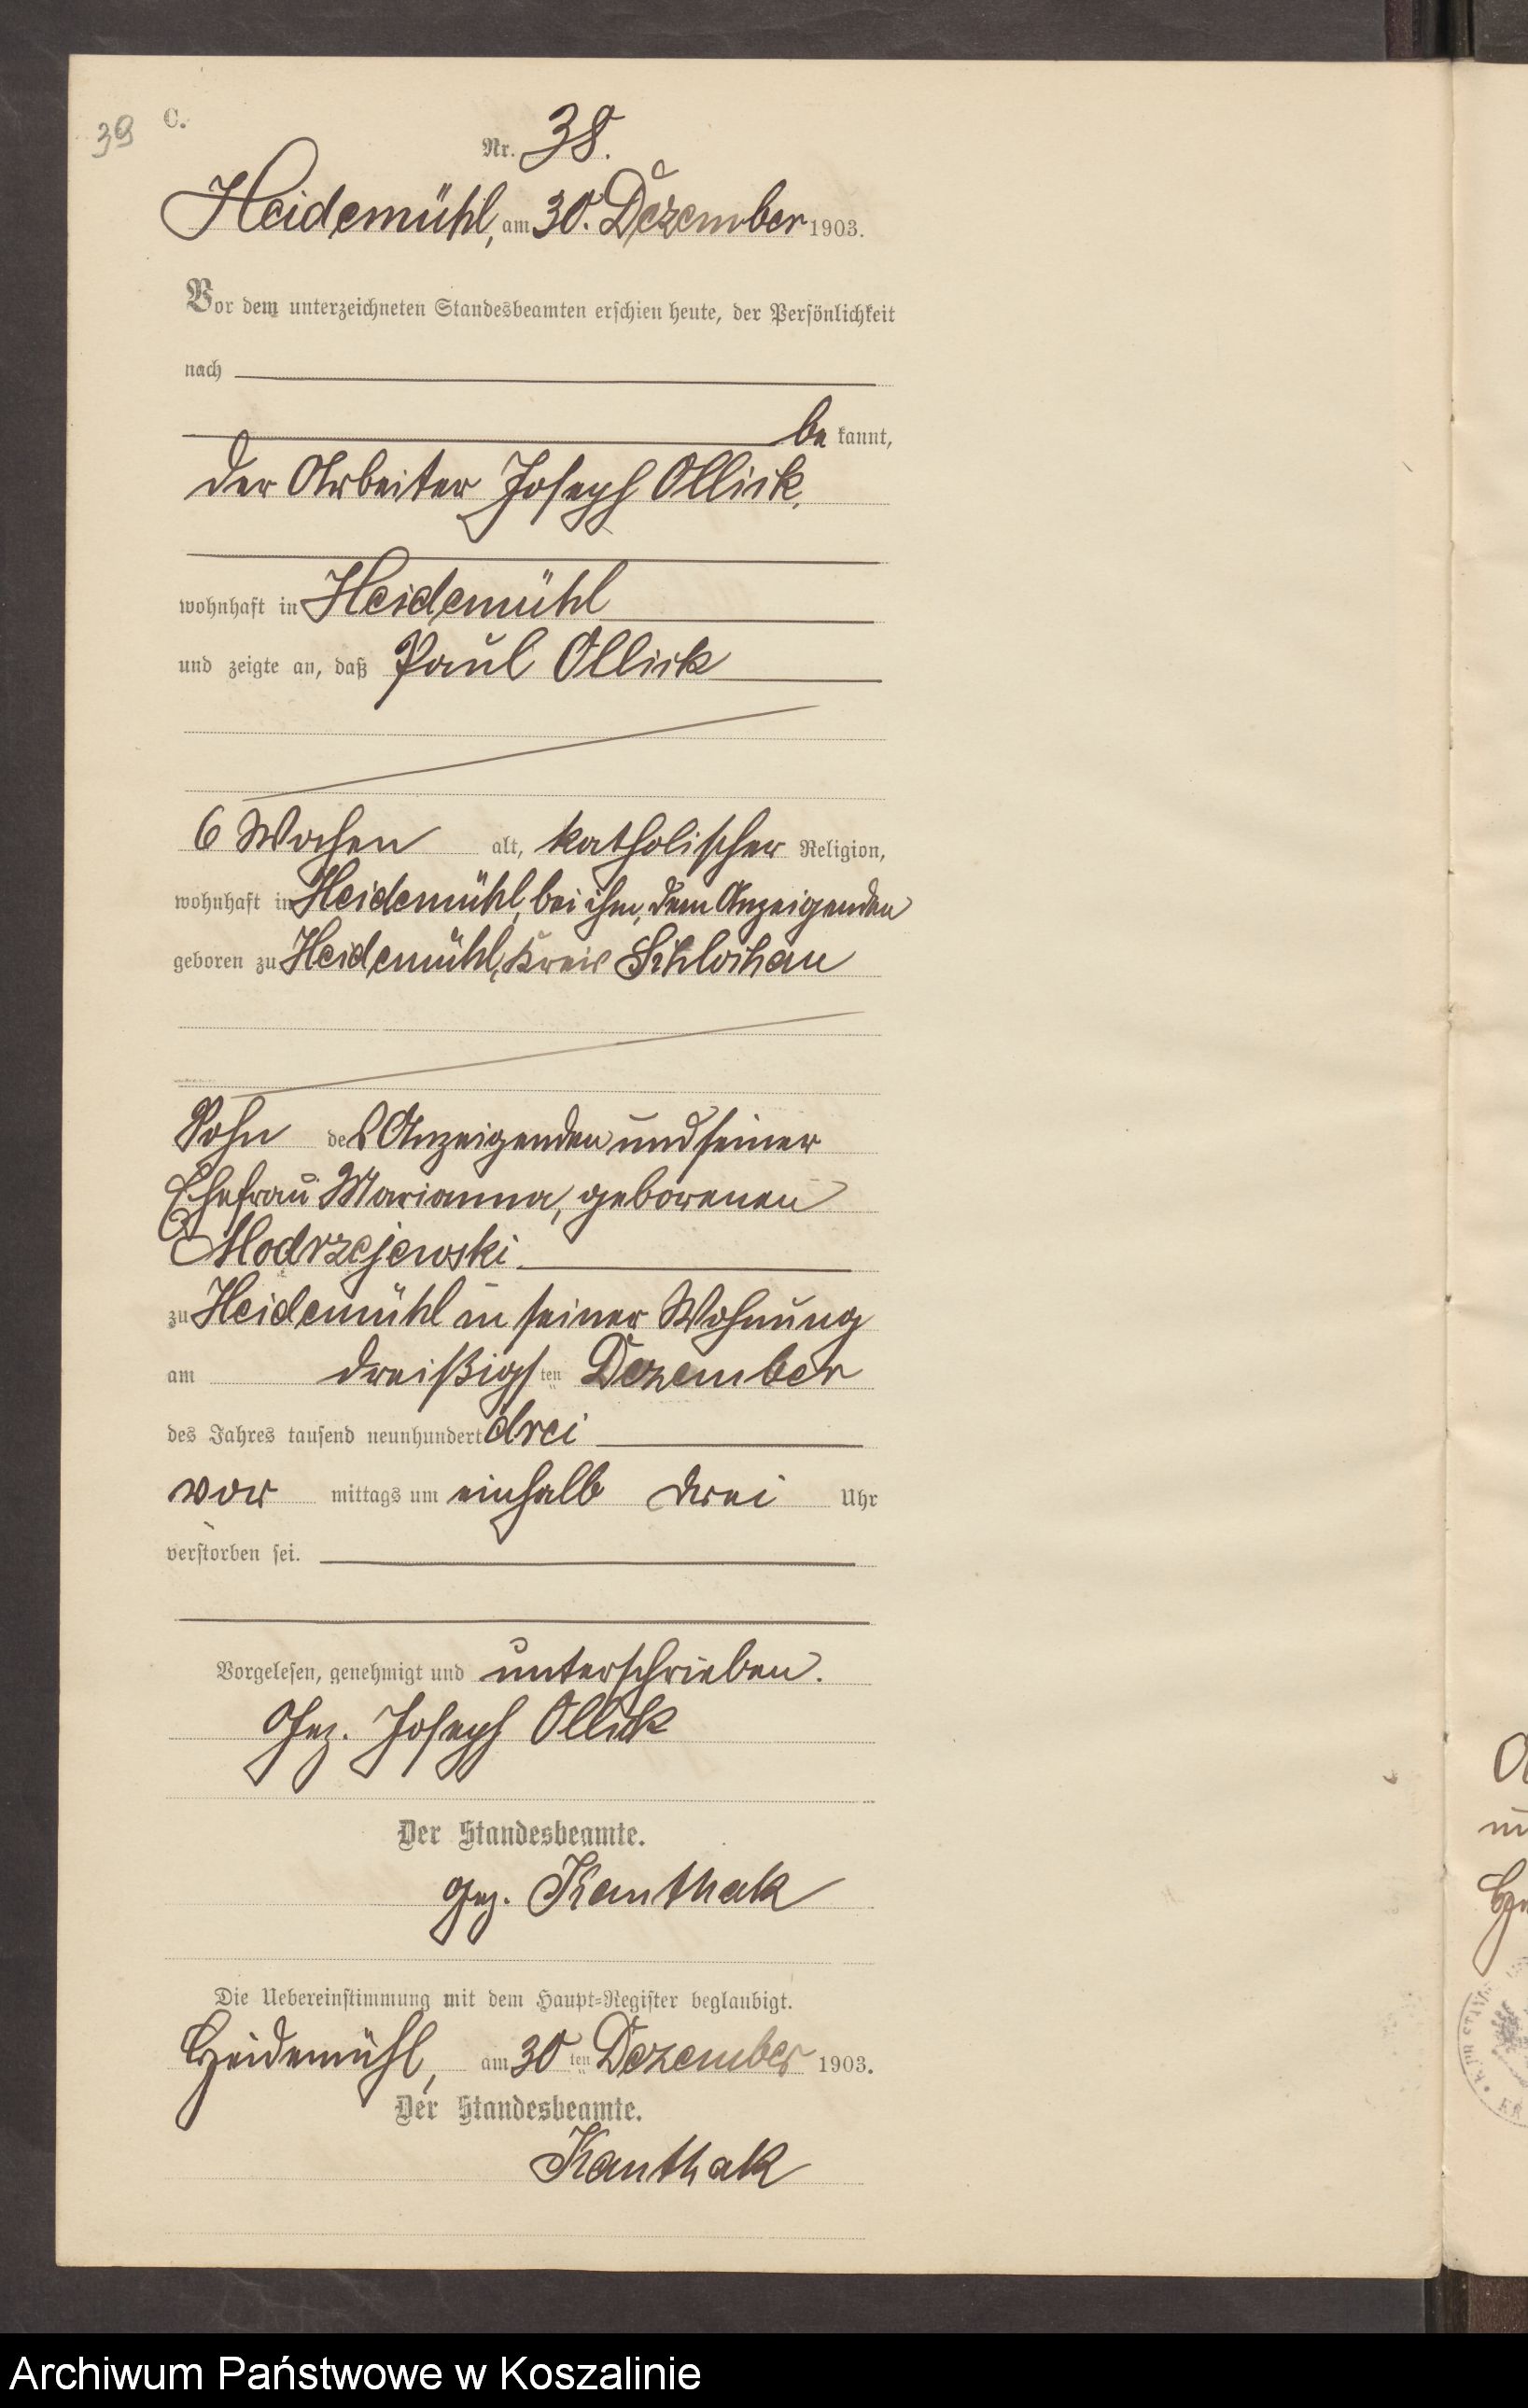 39
C.
Nr. 38.
Heidemühl, am 30. Dezember 1903.
Vor dem unterzeichneten Standesbeamten erschien heute, der Persönlichkeit
nach
be kannt,
der Arbeiter Joseph Ollick,
wohnhaft in Heidemühl
und zeigte an, daß Paul Ollick
6 Wochen alt, katholischer Religion,
wohnhaft in Heidemühl, bei ihm, dem Anzeigenden
geboren zu Heidemühl, Kreis Schlochau
Sohn des Anzeigenden und seiner
Ehefrau Marianna, geborenen
Modrzejewski.
zu Heidemühl in seiner Wohnung
am dreißigsten Dezember
des Jahres tausend neunhundert drei
vor mittags um einhalb drei Uhr
verstorben sei.
Vorgelesen, genehmigt und unterschrieben.
Gez. Joseph Ollick
Der Standesbeamte.
gez. Kanthak
Die Uebereinstimmung mit dem Haupt-Register beglaubigt.
Heidemühl, am 30 ten Dezember 1903.
Der Standesbeamte.
Kanthak
Archiwum Państwowe w Koszalinie